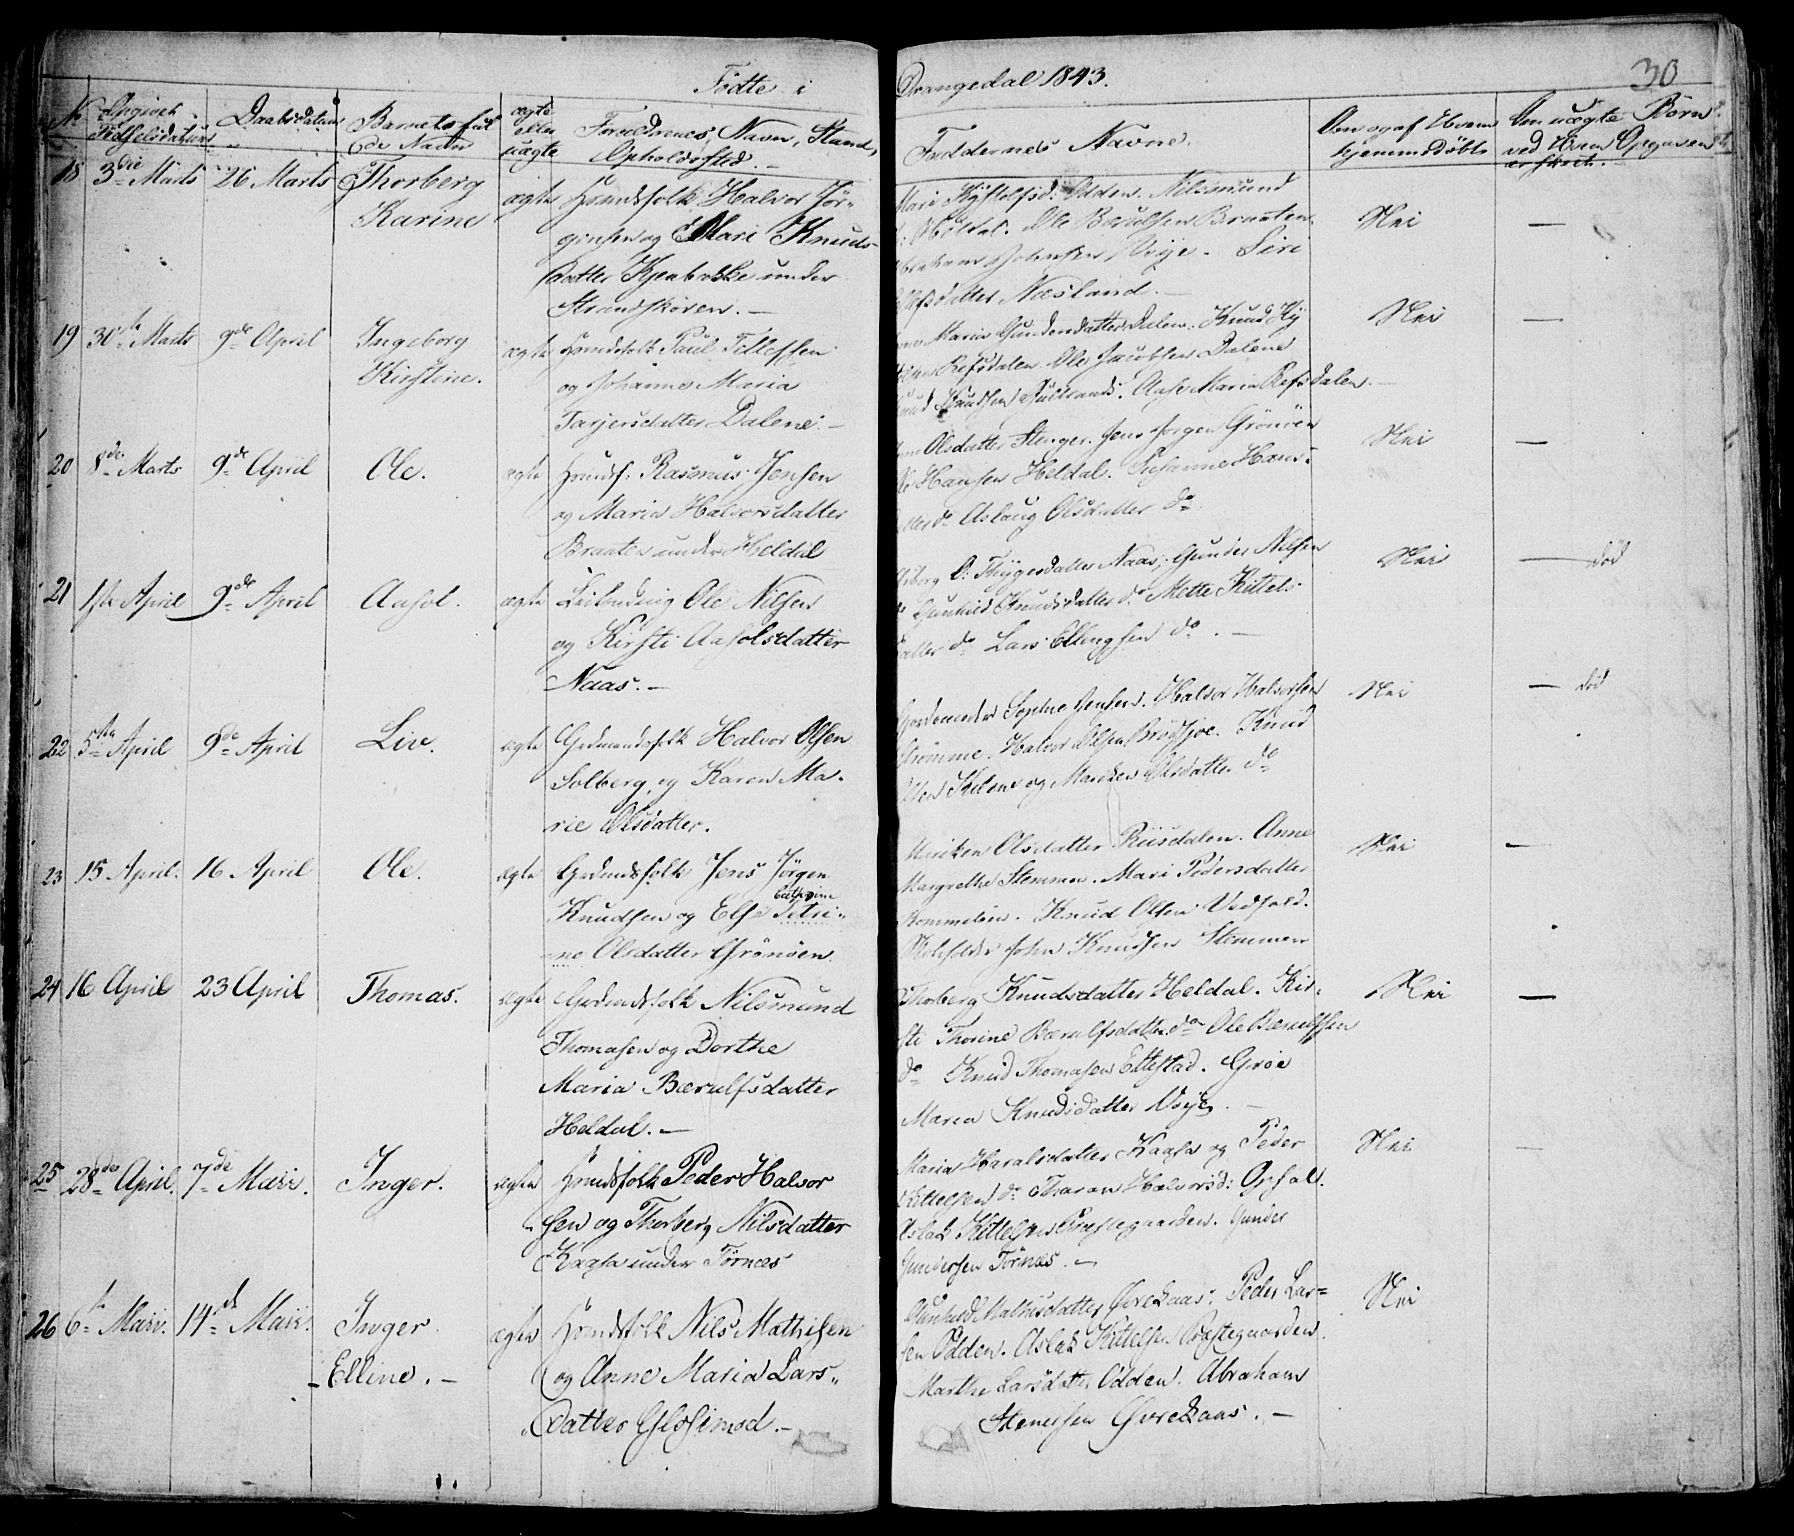 Födte i Drangedal 1843.
30
No Opgivet Födselsdatum
Daabsdatum
Barnets fulde Navn
ægte eller uægte
Forældrenes Navn, Stand, Opholdssted.
Faddernes Navne.
Om og af Hvem hjemmedöbt
Om uægte Börn
18 3die Marts 26 Marts Thorberg
Karine
ægte Huusfolk Halvor Jör-
gensen og Mari Knuds-
datter Kjenbakke under
Strandskoven. —
Odden. Nilsmund
Ole Bærulfsen Braaten.
Vrije. Siri
datter Næsland. —
Nei —
19 30te Marts 9de April Ingeborg
Kirstine.
ægte Huusfolk Paul Tellefsen
og Johanne Maria
Tarjersdatter Dalene. —
Maria Gundersdatter Dalen. Knud
Refsdalen. Ole Jacobsen Dalene
Knudsen Aase Maria Refsdalen. —
Nei —
20 8de Marts 9de April Ole.
ægte Huusf: Rasmus Jensen
og Maria Halvorsdatter
Braaten under Heldal
Olsdatter Stenger. Jens Jörgen Grönöen
Hansen Heldal. Susanne Hans-
do Aslaug Olsdatter do
Nei —
21 1ste April 9de April Aasol.
ægte Leilending Ole Nilsen
og Kirsti Aasolsdatter
Naas. —
Thygesdatter Naas. Gunder Nilsen
do Gunhild Knudsdatter do Mette Kittels-
datter do Lars Ellingsen do. —
Nei — död
22 5te April 9de April Liv.
ægte Grdmandsfolk Halvor Olsen
Solberg, og Karen Ma-
rie Olsdatter.
Gordemoder Sophie Jensen. Halvor Halvorsen
Strömme. Halvor Olsen Brödsjöe. Knud
Olsen og Maricken Olsdatter do
Nei — död
23 15 April. 16 April Ole.
ægte Grdmdsfolk Jens Jörgen
Cathrine
Knudsen og Else Petri-
ne Olsdatter Grönöen.
Mariken Olsdatter Riisdalen. Anne
Margrethe Stemmen. Mari Pedersdatter
Knud Olsen Vedfald.
Skoleholder John Knudsen Stemmen
Nei —
24 16 April 23 April Thomas.
ægte Grdmdsfolk Nilsmund
Thomasen og Dorthe
Maria Bærulfsdatter
Heldal. —
Thorberg Knudsdatter Heldal. Kir-
sti Thorine Bærulfsdatter do Ole Bærulfsen
do Knud Thomasen Ettestad. Groe
Maren Knudsdatter Vrije. —
Nei —
25 28de April. 7de Maii. Inger.
ægte Huusfolk Peder Halvor
sen og Thorberg Nilsdatter
Kaasa under Törnæs
Maria Haralsdatter Kaasa og Peder
Kittelsen do Tharan Halvorsd: Opsal.
Aslak Kittelsen Præstegaarden. Gunder
Gundersen Törnæs. —
Nei —
26 6te Maii. 14de Maii. Inger
Elline. —
ægte Huusfolk Nils Mathisen
og Anne Maria Lars-
datter Glosimod. —
Gunhild Mathisdatter Övrekaas. Peder Lar-
sen Odden. Aslak Kittelsen Præstegaarden.
Marthe Larsdatter Odden. Abraham
Stenersen Övrekaas. —
Nei